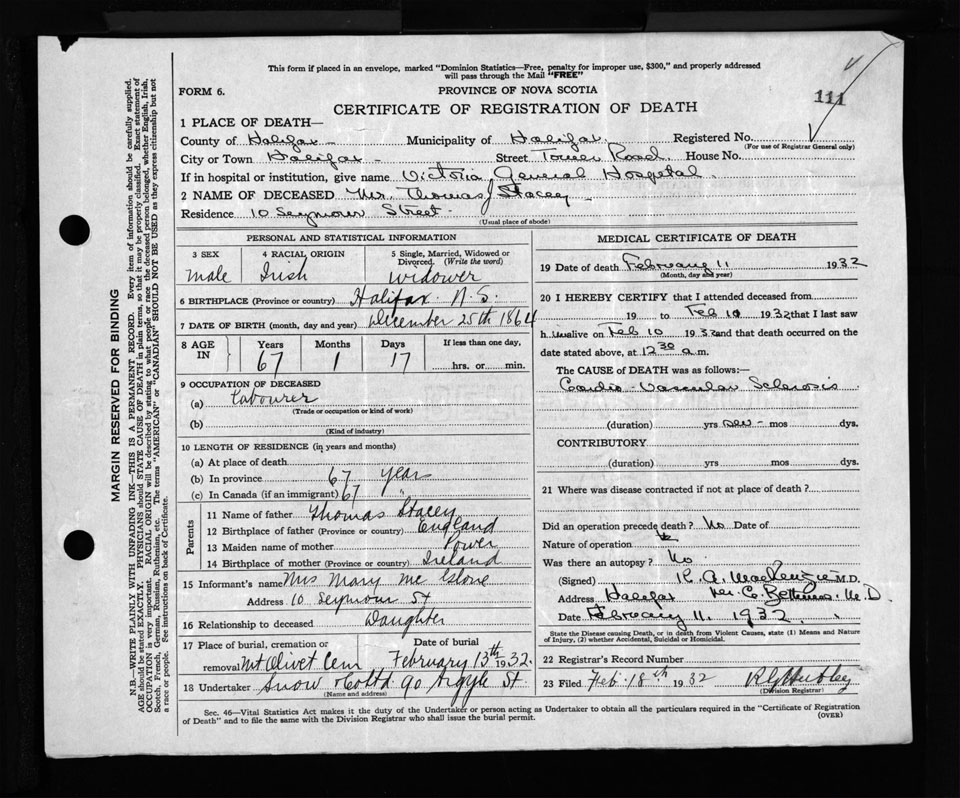 This form if placed in an envelope, marked "Dominion Statistics—Free, penalty for improper use, $300," and properly addressed
will pass through the Mail "FREE"
111
FORM 6.
PROVINCE OF NOVA SCOTIA
CERTIFICATE OF REGISTRATION OF DEATH
1 PLACE OF DEATH—
County of Halifax Municipality of Halifax Registered No.
(For use of Registrar General only)
City or Town Halifax Street Tower Road. House No.
If in hospital or institution, give name Victoria General Hospital.
2 NAME OF DECEASED Mr. Thomas Stacey
Residence 10 Seymour Street
(Usual place of abode)
PERSONAL AND STATISTICAL INFORMATION
3 SEX 4 RACIAL ORIGIN 5 Single, Married, Widowed or
Divorced. (Write the word)
male Irish widower
6 BIRTHPLACE (Province or country) Halifax N.S.
7 DATE OF BIRTH (month, day and year) December 25th 1864
8 AGE IN Years Months Days If less than one day,
67 1 17 hrs. or min.
9 OCCUPATION OF DECEASED
(a) Labourer
(Trade or occupation or kind of work)
(b)
(Kind of industry)
10 LENGTH OF RESIDENCE (in years and months)
(a) At place of death
(b) In province 67 year
(c) In Canada (if an immigrant) 67 "
Parents
11 Name of father Thomas Stacey
12 Birthplace of father (Province or country) England
13 Maiden name of mother Power
14 Birthplace of mother (Province or country) Ireland
15 Informant's name Mrs Mary Mc Glone
Address 10 Seymour St
16 Relationship to deceased Daughter
17 Place of burial, cremation or Date of burial
removal Mt Olivet Cem February 13th 1932.
18 Undertaker Snow & Co Ltd 90 Argyle St
(Name and address)
MEDICAL CERTIFICATE OF DEATH
19 Date of death February 11 1932
(Month, day and year)
20 I HEREBY CERTIFY that I attended deceased from
19 to Feb 10 1932 that I last saw
h im alive on Feb 10 1932 and that death occurred on
date stated above, at 12 30 a.m.
The CAUSE of DEATH was as follows:—
Cardio-Vascular Sclerosis
(duration) yrs mos dys.
CONTRIBUTORY
(duration) yrs mos dys.
21 Where was disease contracted if not at place of death?
Did an operation precede death? No Date of
Nature of operation
Was there an autopsy? No
(Signed) K. A. MacKenzie M.D.
Address Halifax M.D.
Date February 11, 1932.
State the Disease causing Death, or in death from Violent Causes, state (1) Means and Nature
of Injury, (2) whether Accidental, Suicidal or Homicidal.
22 Registrar's Record Number
23 Filed Feb. 18th 1932
(Division Registrar)
Sec. 46—Vital Statistics Act makes it the duty of the Undertaker or person acting as Undertaker to obtain all the particulars required in the "Certificate of Registration
of Death" and to file the same with the Division Registrar who shall issue the burial permit.
(OVER)
MARGIN RESERVED FOR BINDING
N.B.—WRITE PLAINLY WITH UNFADING INK—THIS IS A PERMANENT RECORD. Every item of information should be carefully supplied.
AGE should be stated EXACTLY. PHYSICIANS should STATE CAUSE OF DEATH in plain terms, so that it may be properly classified. Exact statement of
OCCUPATION is very important. RACIAL ORIGIN will be described by stating to what people or race the deceased person belonged, whether English, Irish,
Scotch, French, German, Russian, Ruthenian, etc. The terms "AMERICAN" or "CANADIAN" SHOULD NOT BE USED as they express citizenship but not
a race or people. See instructions on back of Certificate.